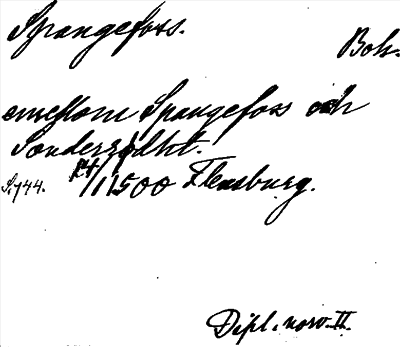 Spangefoss.
Boh.
emellom Spangefoss och
Sonderzodht.
S. 744. 24/11 1500 Flensburg.
Dipl. norv. II.